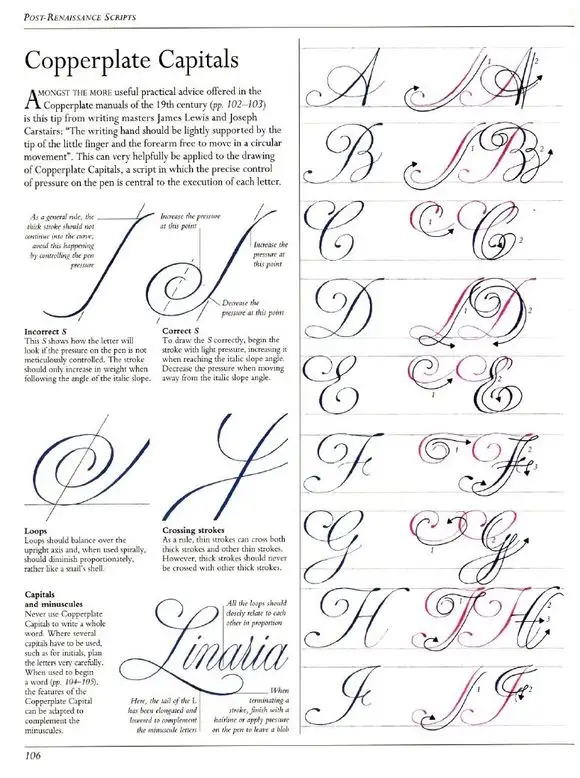 POST-RENAISSANCE SCRIPTS
Copperplate Capitals
AMONGST THE MORE useful practical advice offered in the
Copperplate manuals of the 19th century (pp. 102–103)
is this tip from writing masters James Lewis and Joseph
Carstairs: "The writing hand should be lightly supported by the
tip of the little finger and the forearm free to move in a circular
movement". This can very helpfully be applied to the drawing
of Copperplate Capitals, a script in which the precise control
of pressure on the pen is central to the execution of each letter.
As a general rule, the
thick stroke should not
continue into the curve;
avoid this happening
by controlling the pen
pressure
Increase the pressure
at this point
Increase the
pressure at
this point
Decrease the
pressure at this point
Incorrect S
This S shows how the letter will
look if the pressure on the pen is not
meticulously controlled. The stroke
should only increase in weight when
following the angle of the italic slope.
Correct S
To draw the S correctly, begin the
stroke with light pressure, increasing it
when reaching the italic slope angle.
Decrease the pressure when moving
away from the italic slope angle.
Loops
Loops should balance over the
upright axis and, when used spirally,
should diminish proportionately,
rather like a snail's shell.
Crossing strokes
As a rule, thin strokes can cross both
thick strokes and other thin strokes.
However, thick strokes should never
be crossed with other thick strokes.
Capitals
and minuscules
Never use Copperplate
Capitals to write a whole
word. Where several
capitals have to be used,
such as for initials, plan
the letters very carefully.
When used to begin
a word (pp. 104–105),
the features of the
Copperplate Capital
can be adapted to
complement the
minuscules.
All the loops should
closely relate to each
other in proportion
Linaria
Here, the tail of the L
has been elongated and
lowered to complement
the minuscule letters
When
terminating a
stroke, finish with a
hairline or apply pressure
on the pen to leave a blob
A 1 A 2
B 1 B 2
C 1 C 2
D 1 D 2
E 1 E 2
F 1 F 2 3
G 1 G 2
H 1 H 2 3
I 1 I 2
106